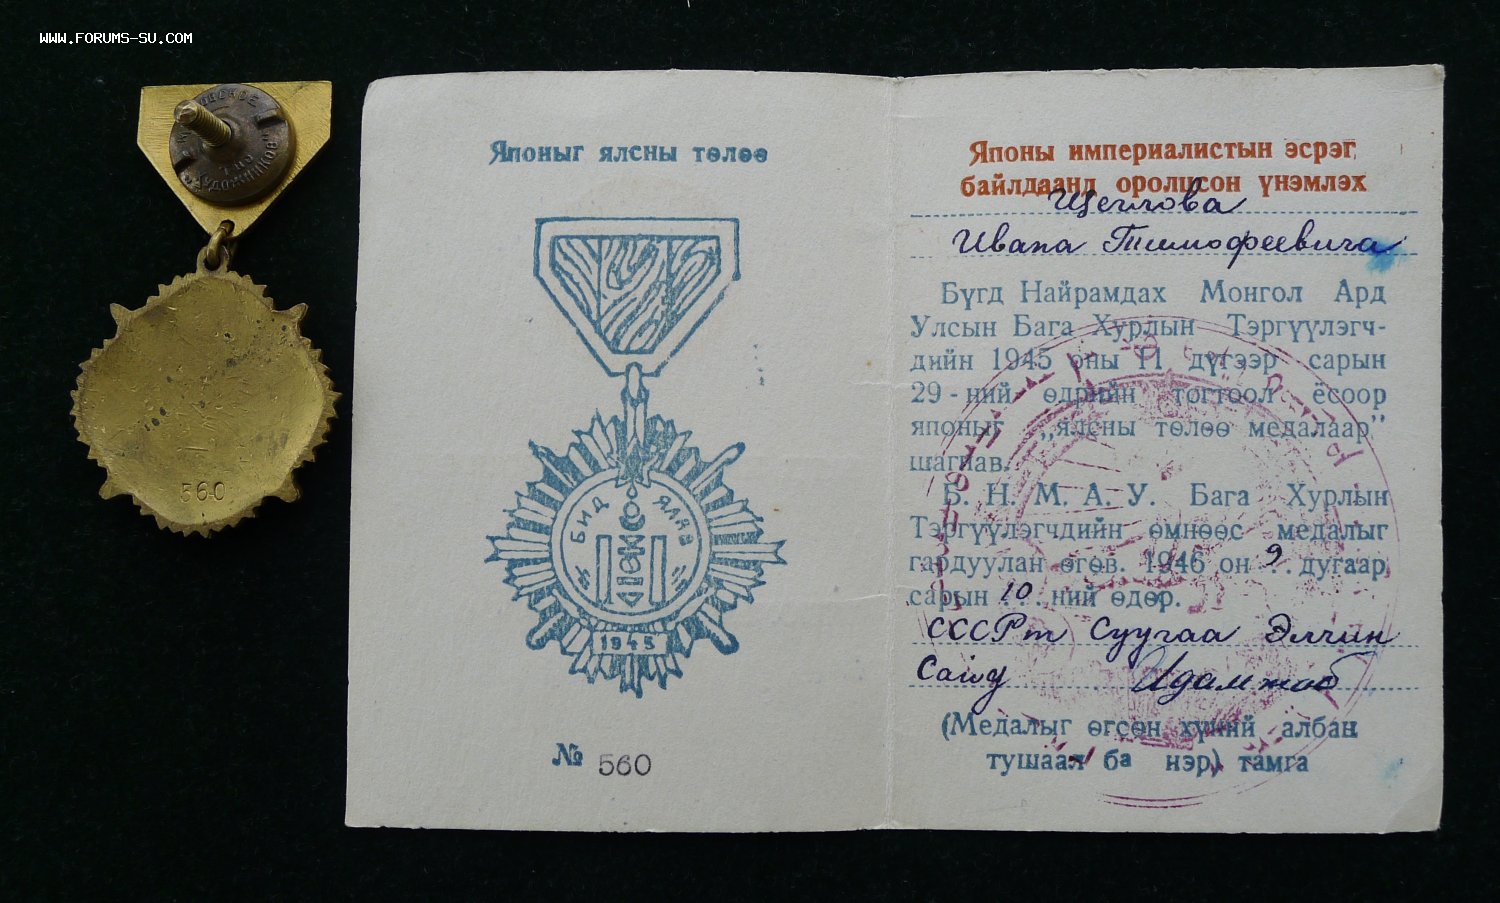 WWW.FORUMS-SU.COM
560
Японыг ялсны төлөө
БИД ЯЛАВ
1945
№ 560
Японы империалистын эсрэг
байлдаанд оролцсон үнэмлэх
Щеглова
Ивана Тимофеевича
Бүгд Найрамдах Монгол Ард
Улсын Бага Хурлын Тэргүүлэгч-
дийн 1945 оны 11 дүгээр сарын
29-ний өдрийн тогтоол ёсоор
японыг „ялсны төлөө медалаар"
шагнав.
Б. Н. М. А. У. Бага Хурлын
Тэргүүлэгчдийн өмнөөс медалыг
гардуулан өгөв. 1946 он 9 дугаар
сарын 10 ний өдөр.
СССРт Суугаа Элчин
Сайд Идамжаб
(Медалыг өгсөн хүний албан
тушаал ба нэр) тамга